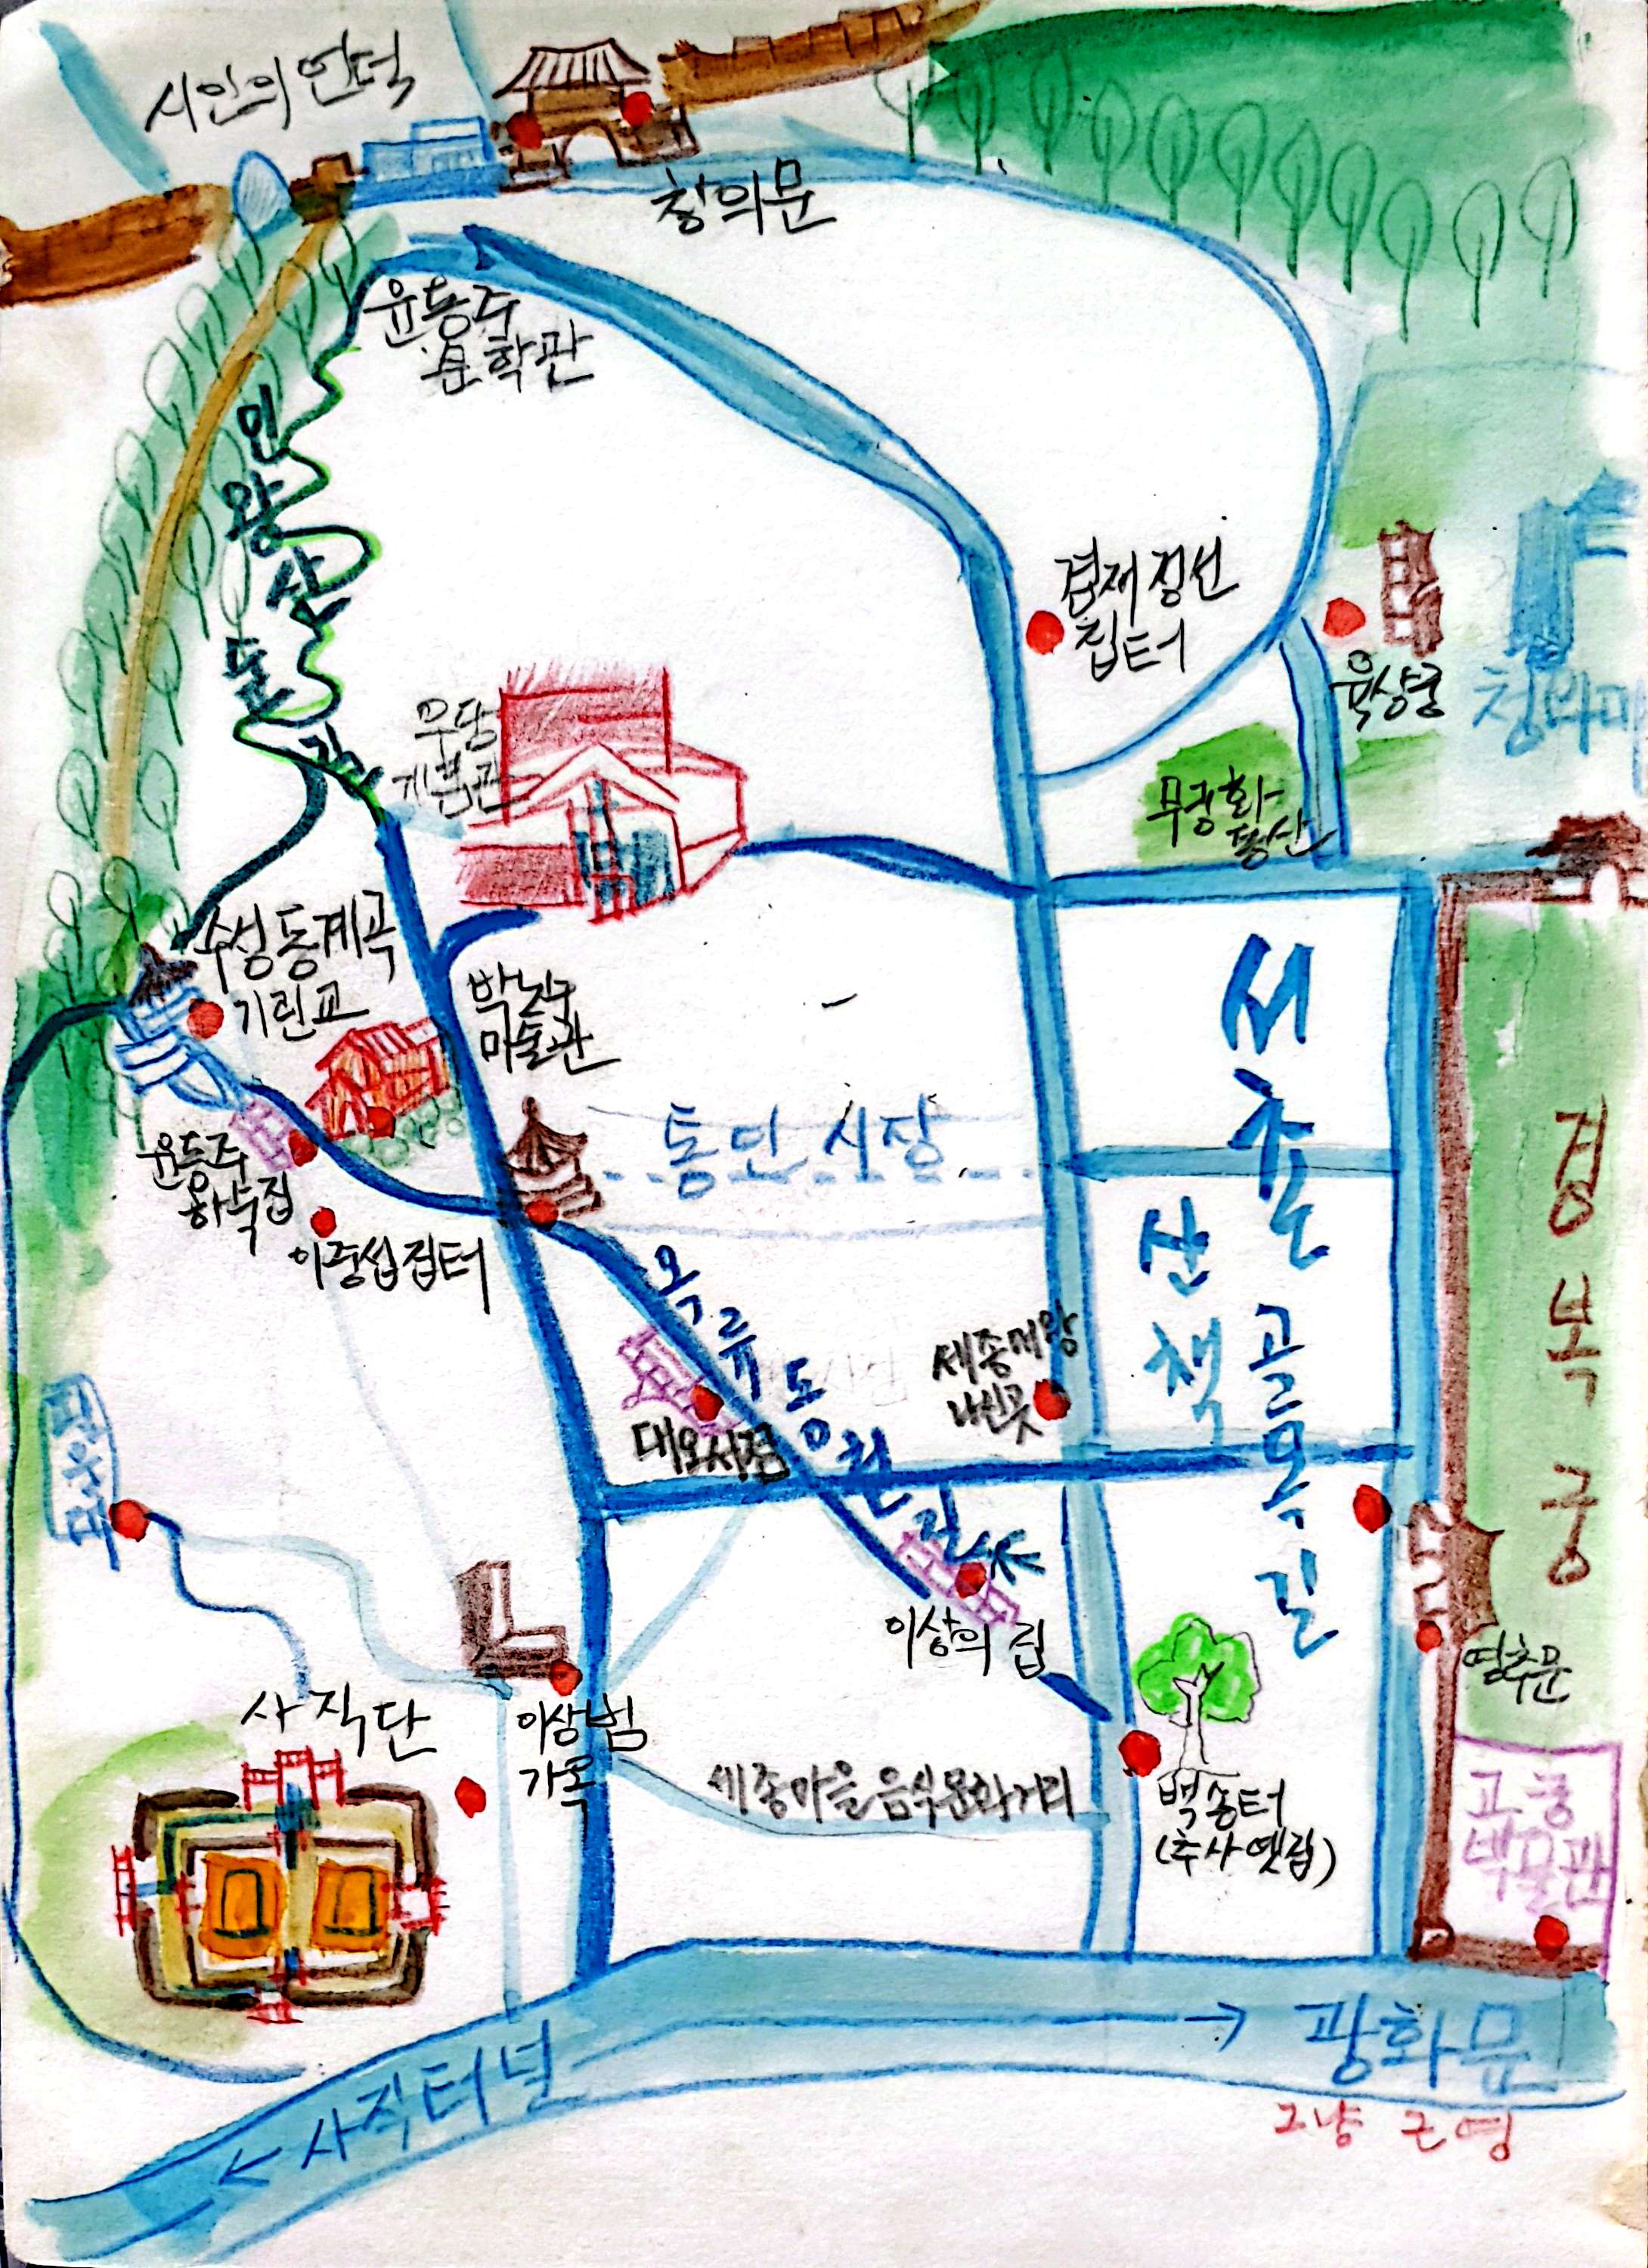 시인의 언덕
창의문
윤동주
문학관
인왕산 둘레길
겸재 정선
집터
육상궁
무궁화
동산
우당
기념관
수성동계곡
기린교
박노수
미술관
통인시장
윤동주
하숙집
이중섭 집터
옥류동천길
서촌
산책
골목길
경복궁
세종대왕
나신곳
대오서점
이상의 집
영추문
사직단
이상범
가옥
세종마을 음식문화거리
백송터
(추사옛집)
고궁
박물관
← 사직터널
→ 광화문
그냥 근영